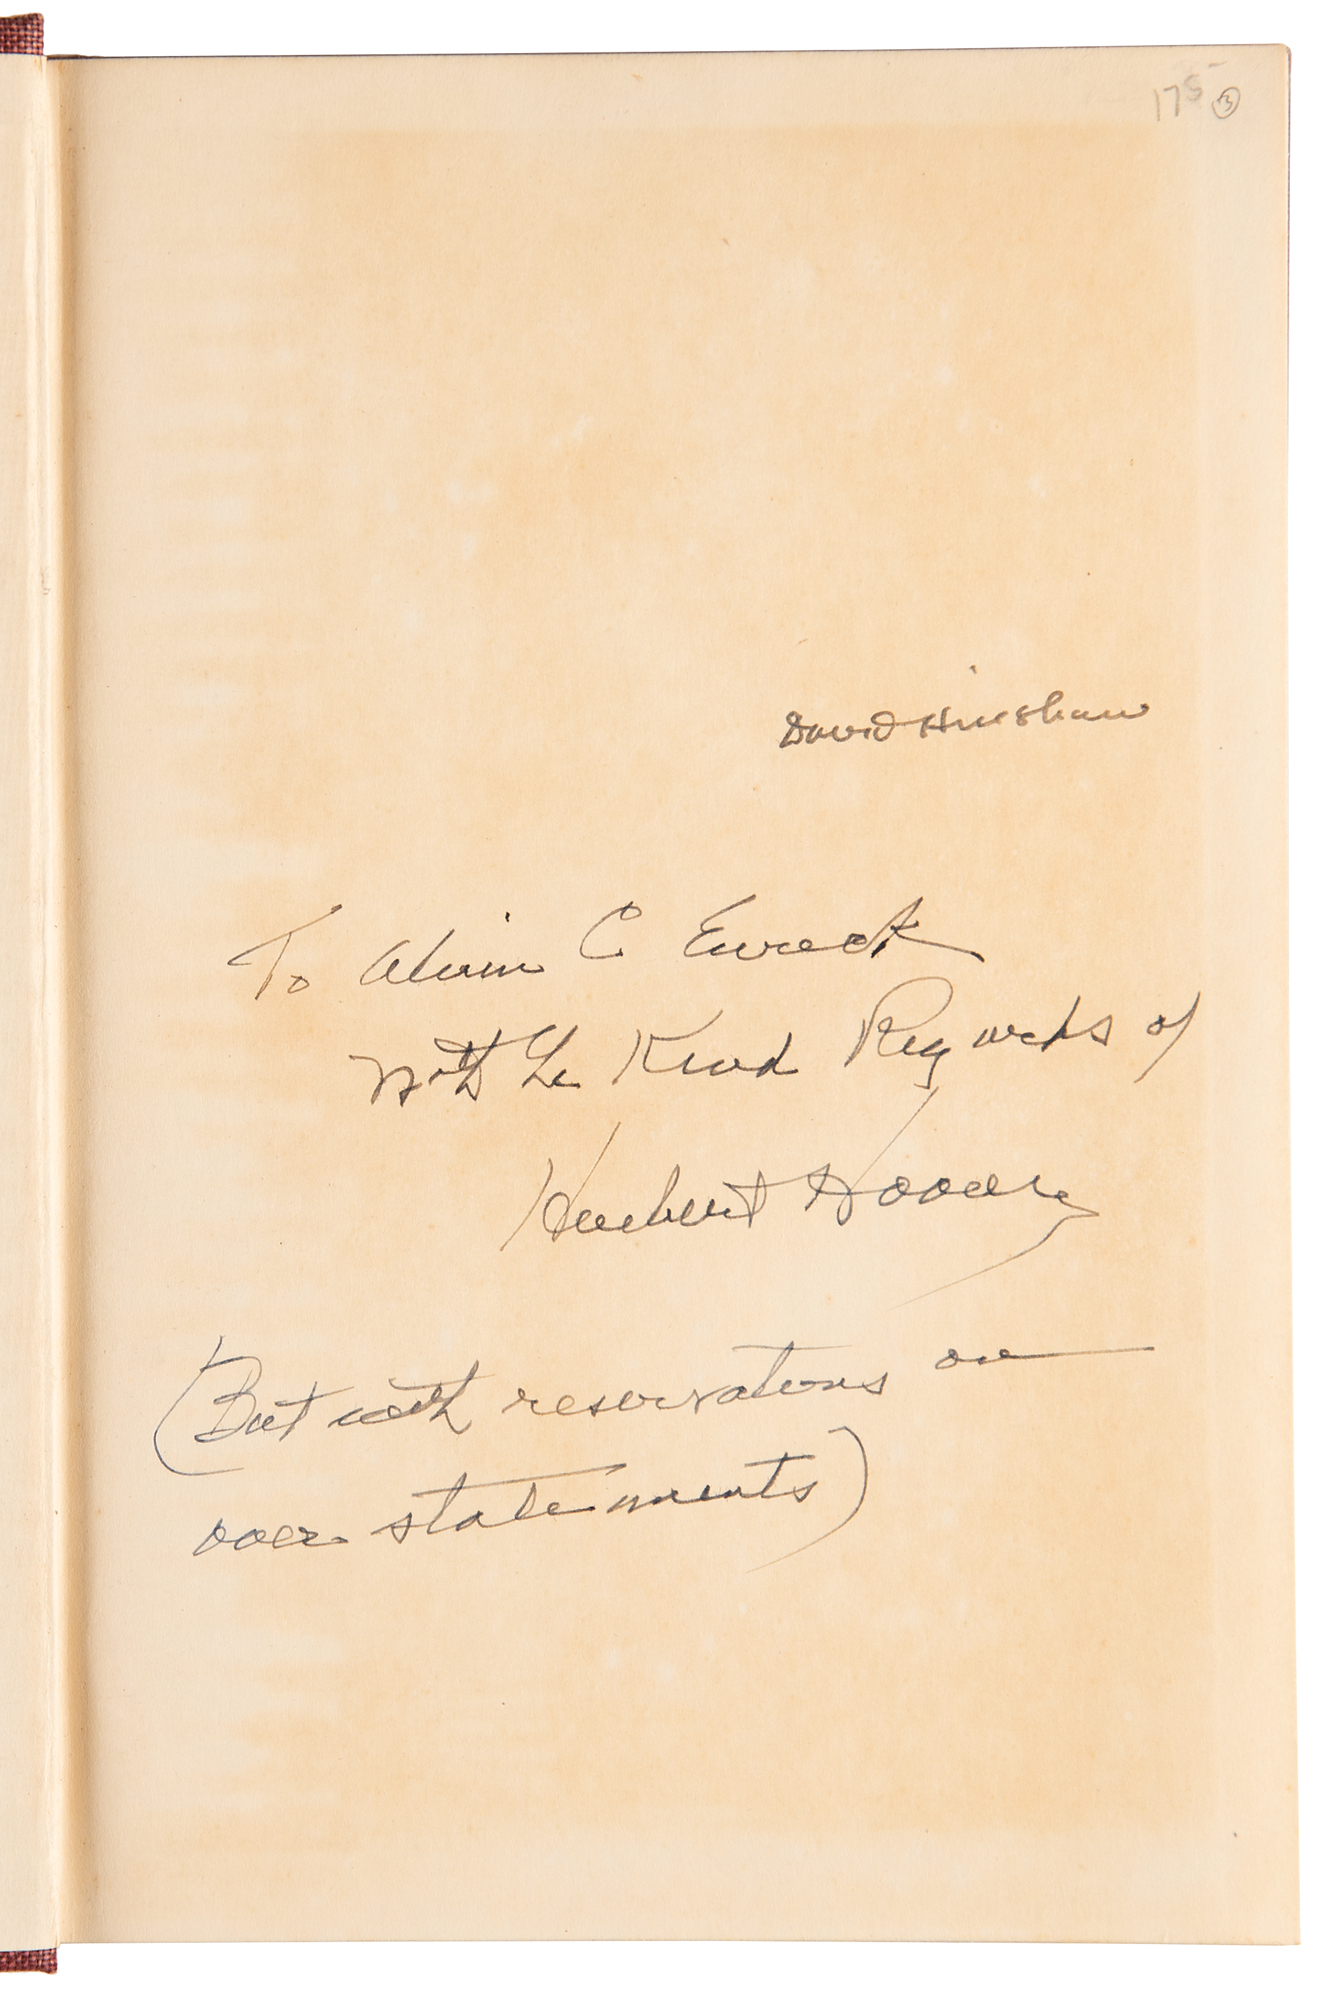 175-
David Hinshaw
To Alvin C Eurect
With the Kind Regards of
Herbert Hoover
(But with reservations on
over statements)